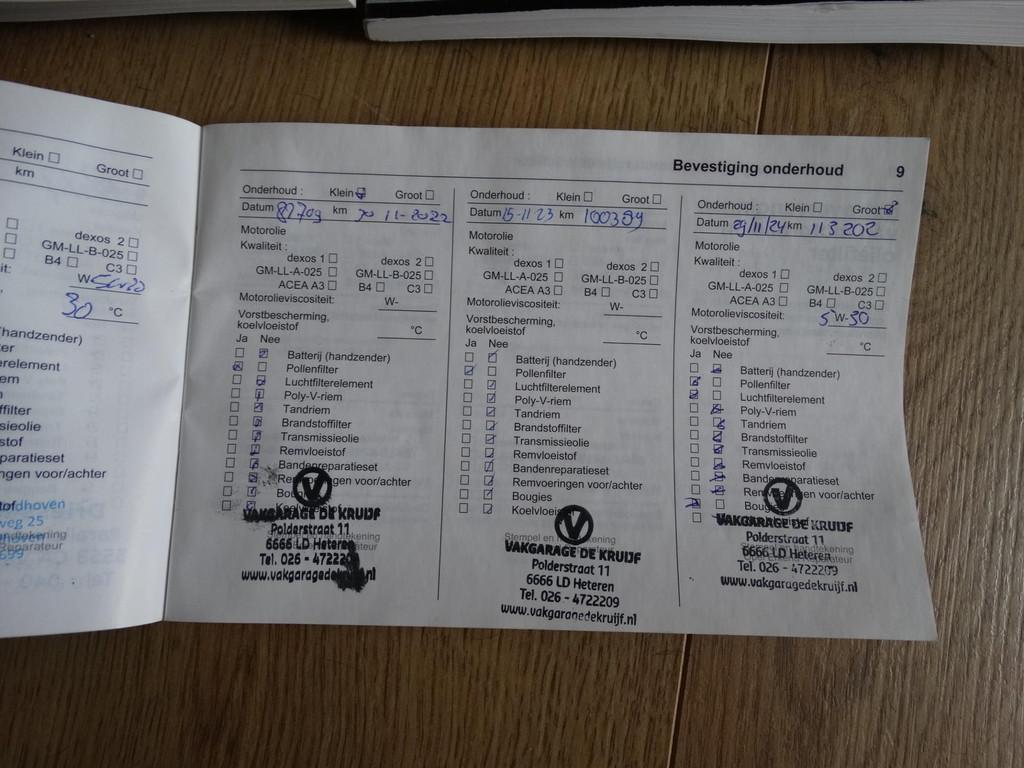 Klein ☐ Groot ☐
km
dexos 2 ☐
GM-LL-B-025 ☐
B4 ☐ C3 ☐
W
30 °C
handzender)
erelement
em
ffilter
sieolie
stof
paratieset
ngen voor/achter
dhoven
weg 25
Reparateur
Bevestiging onderhoud 9
Onderhoud : Klein ☑ Groot ☐
Datum 82709 km 30 11-2022
Motorolie
Kwaliteit :
dexos 1 ☐ dexos 2 ☐
GM-LL-A-025 ☐ GM-LL-B-025 ☐
ACEA A3 ☐ B4 ☐ C3 ☐
Motorolieviscositeit: W-
Vorstbescherming,
koelvloeistof °C
Ja Nee
☐ ☑ Batterij (handzender)
☑ ☐ Pollenfilter
☐ ☑ Luchtfilterelement
☐ ☑ Poly-V-riem
☐ ☑ Tandriem
☐ ☑ Brandstoffilter
☐ ☑ Transmissieolie
☐ ☑ Remvloeistof
☐ ☑ Bandenreparatieset
☐ ☑ Remvoeringen voor/achter
☐ ☑ Bougies
☐ ☑ Koelvloeistof
VAKGARAGE DE KRUIJF
Polderstraat 11
6666 LD Heteren
Tel. 026 - 4722209
www.vakgaragedekruijf.nl
Onderhoud : Klein ☐ Groot ☐
Datum 15-11-23 km 100359
Motorolie
Kwaliteit :
dexos 1 ☐ dexos 2 ☐
GM-LL-A-025 ☐ GM-LL-B-025 ☐
ACEA A3 ☐ B4 ☐ C3 ☐
Motorolieviscositeit: W-
Vorstbescherming,
koelvloeistof °C
Ja Nee
☐ ☑ Batterij (handzender)
☑ ☐ Pollenfilter
☐ ☑ Luchtfilterelement
☐ ☑ Poly-V-riem
☐ ☑ Tandriem
☐ ☑ Brandstoffilter
☐ ☑ Transmissieolie
☐ ☑ Remvloeistof
☐ ☑ Bandenreparatieset
☐ ☑ Remvoeringen voor/achter
☐ ☑ Bougies
☐ ☑ Koelvloeistof
Stempel en handtekening
VAKGARAGE DE KRUIJF
Polderstraat 11
6666 LD Heteren
Tel. 026 - 4722209
www.vakgaragedekruijf.nl
Onderhoud : Klein ☐ Groot ☑
Datum 29/11/24 km 113202
Motorolie
Kwaliteit :
dexos 1 ☐ dexos 2 ☐
GM-LL-A-025 ☐ GM-LL-B-025 ☐
ACEA A3 ☐ B4 ☐ C3 ☐
Motorolieviscositeit: 5 W-30
Vorstbescherming,
koelvloeistof °C
Ja Nee
☐ ☑ Batterij (handzender)
☑ ☐ Pollenfilter
☑ ☐ Luchtfilterelement
☐ ☑ Poly-V-riem
☐ ☑ Tandriem
☐ ☑ Brandstoffilter
☐ ☑ Transmissieolie
☐ ☑ Remvloeistof
☐ ☑ Bandenreparatieset
☐ ☑ Remvoeringen voor/achter
☑ ☐ Bougies
VAKGARAGE DE KRUIJF
Polderstraat 11
6666 LD Heteren
Tel. 026 - 4722209
www.vakgaragedekruijf.nl